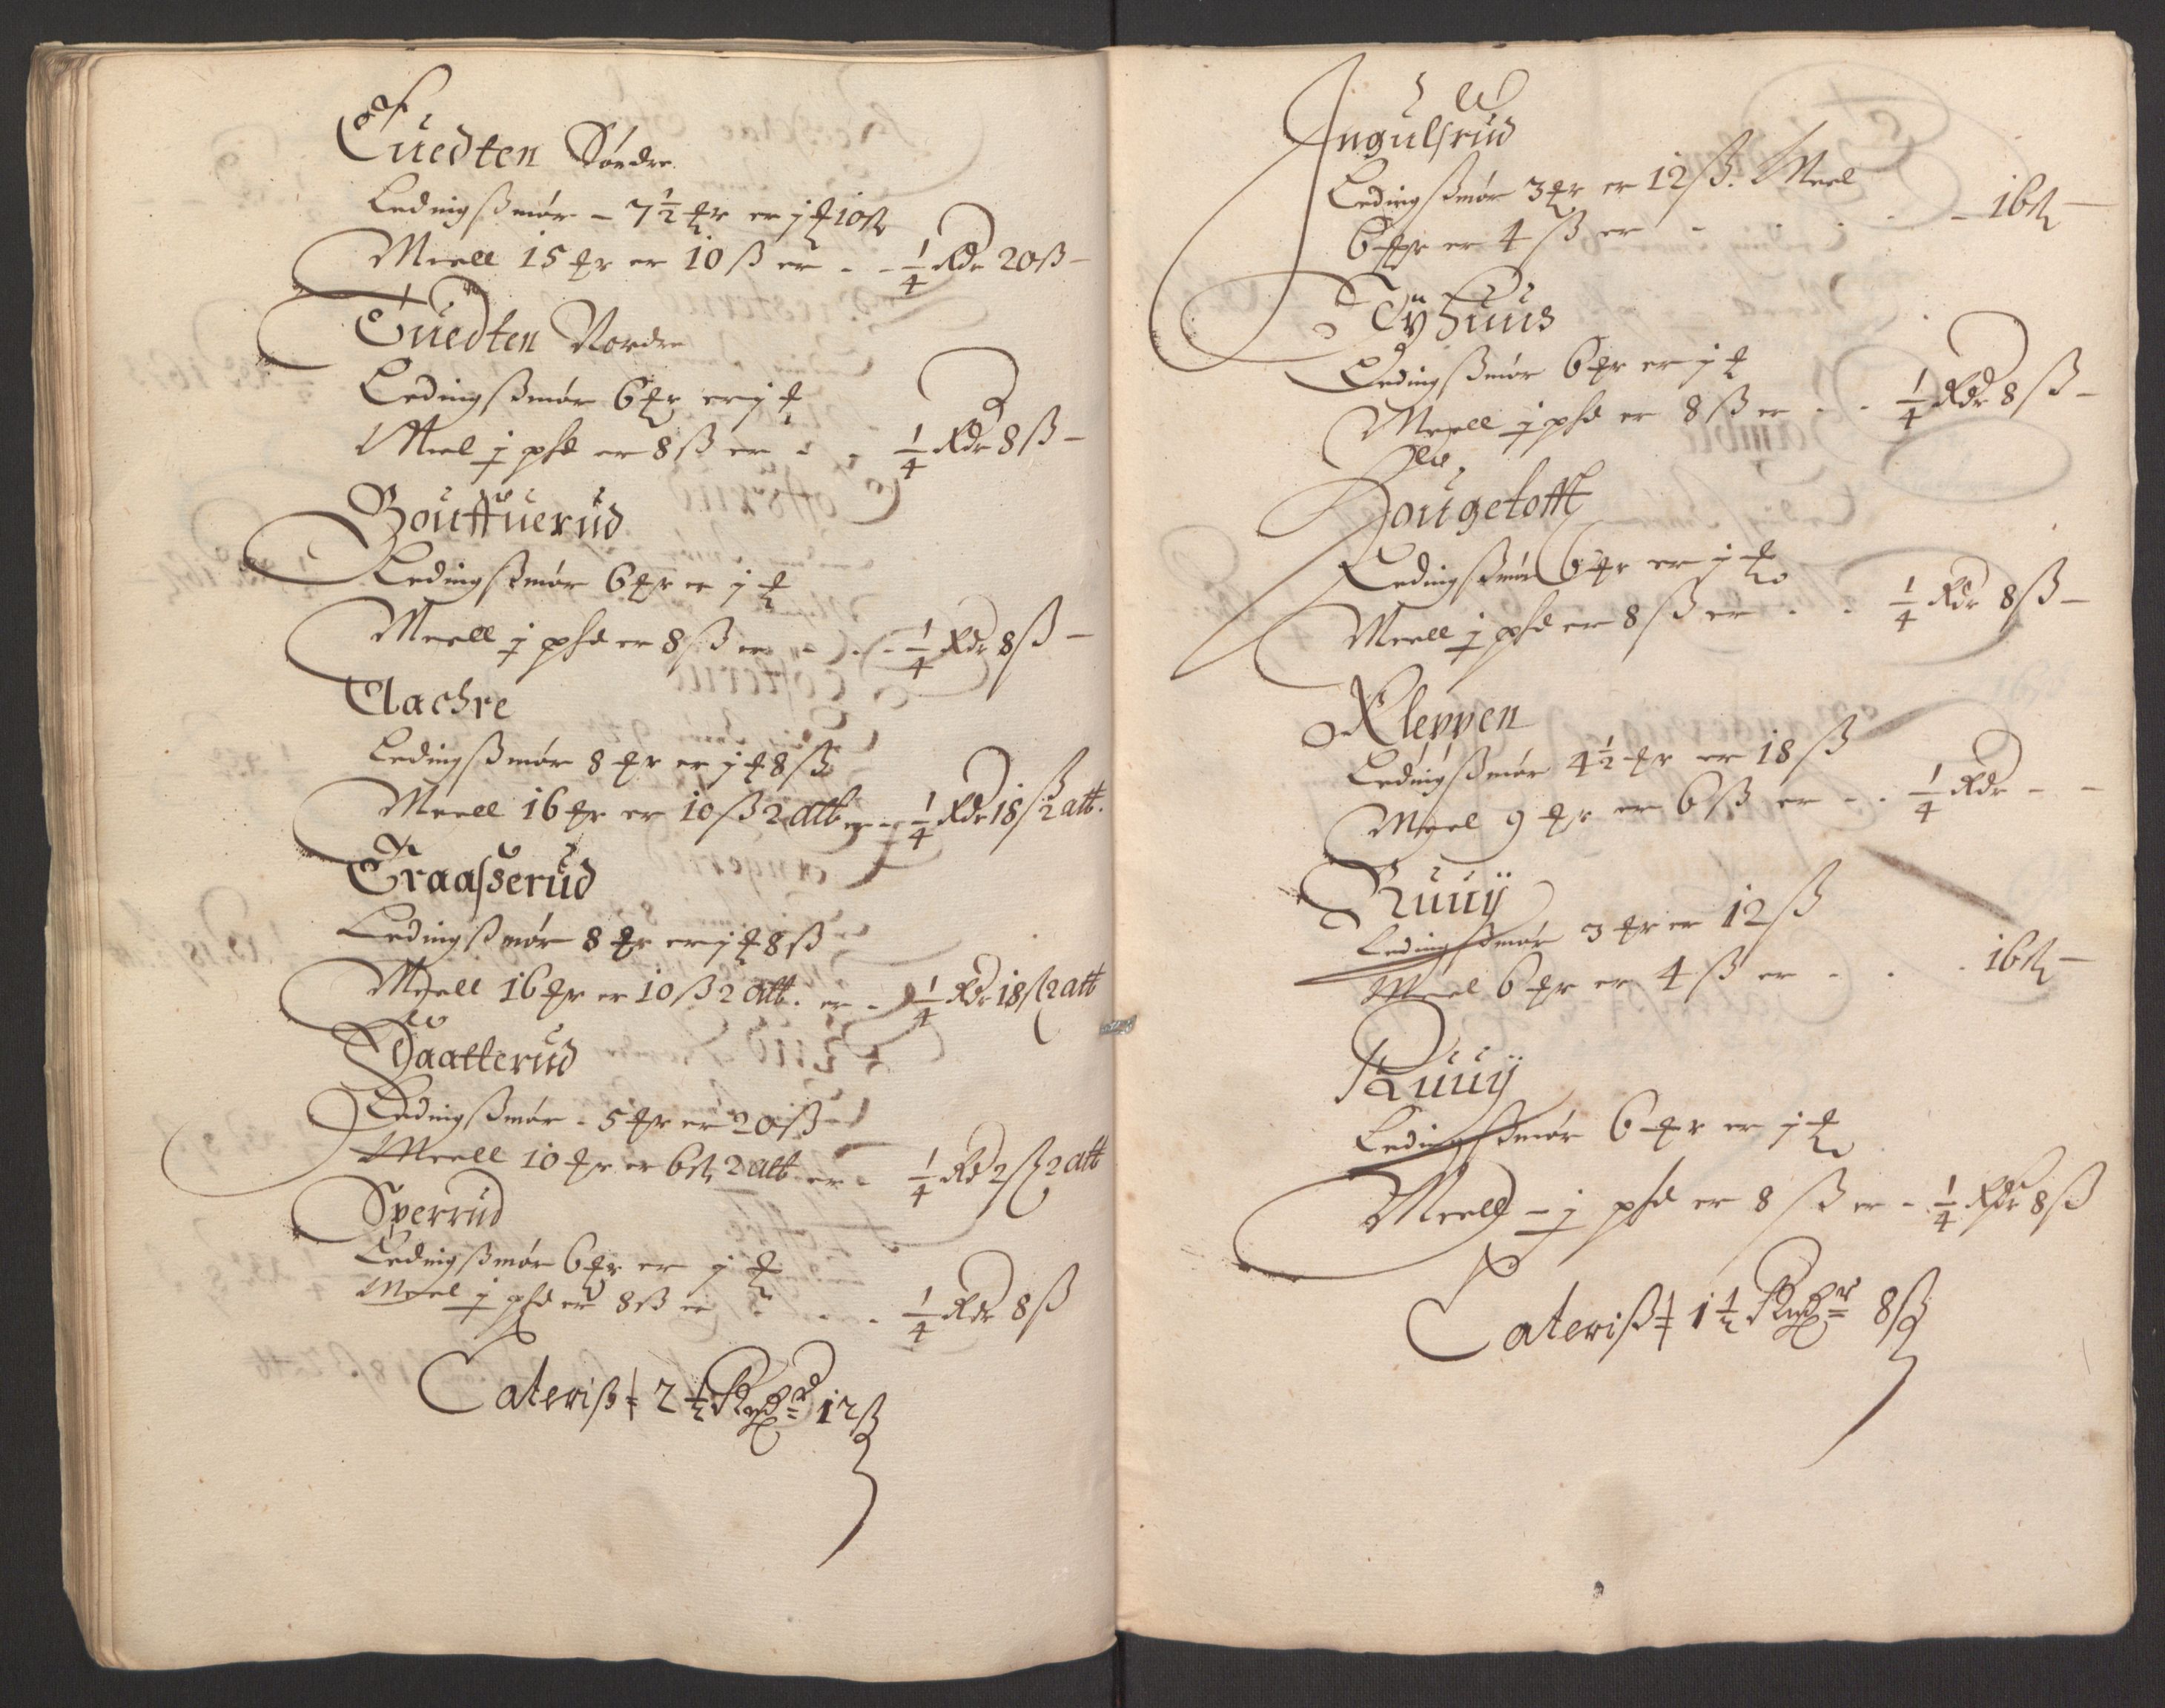 Tuedten Søndre
Ledingßmør - 7½ ℔r er j ℔ 10ß
Meell 15 ℔r er 10 ß er - - ¼ Rdr 20ß -
Tuedten Nordre
Ledingßmør 6 ℔r er j ℔
Meel j pfd er 8 ß er - - ¼ Rdr 8 ß -
Gouttuerud
Ledingßmør 6 ℔r er j ℔
Meell j pfd er 8 ß er - - ¼ Rdr 8 ß -
Aachre
Ledingßmør 8 ℔r er j ℔ 8 ß
Meell 16 ℔r er 10 ß 2 alb er - ¼ Rdr 18 ß 2 alb.
Traasserud
Ledingßmør 8 ℔r er j ℔ 8 ß
Meell 16 ℔r er 10 ß 2 alb. er - ¼ Rdr 18 ß 2 alb
Ledingßmør - 5 ℔r er 20 ß
Meell 10 ℔r er 6 ß 2 alb er - ¼ Rd 2 ß 2 alb
Sperrud
Ledingßmør 6 ℔r er j ℔
Meel j pfd er 8 ß er - - - ¼ Rdr 8 ß
Lateriß 2½ Rixdr 12 ß
Ingulsrud
Ledingßmør 3 ℔r er 12 ß. Meel
6 ℔r er 4 ß er - - - - 16 ß -
Nÿhuus
Ledingßmør 6 ℔r er j ℔
Meell j pfd er 8 ß er - - ¼ Rdr 8 ß -
Hougetofft
Ledingßmør 6 ℔r er j ℔
Meell j pfd er 8 ß er - - ¼ Rdr 8 ß -
Kleppen
Ledingßmør 4½ ℔r er 18 ß
Meel 9 ℔r er 6 ß er - - ¼ Rdr - -
Ruuij
Ledingßmør 3 ℔r er 12 ß
Meel 6 ℔r er 4 ß er - - - 16 ß -
Ruuij
Ledingßmør 6 ℔r er j ℔
Meell - j pfd er 8 ß er - ¼ Rdr 8 ß
Lateriß 1½ Rixdr 8 ß